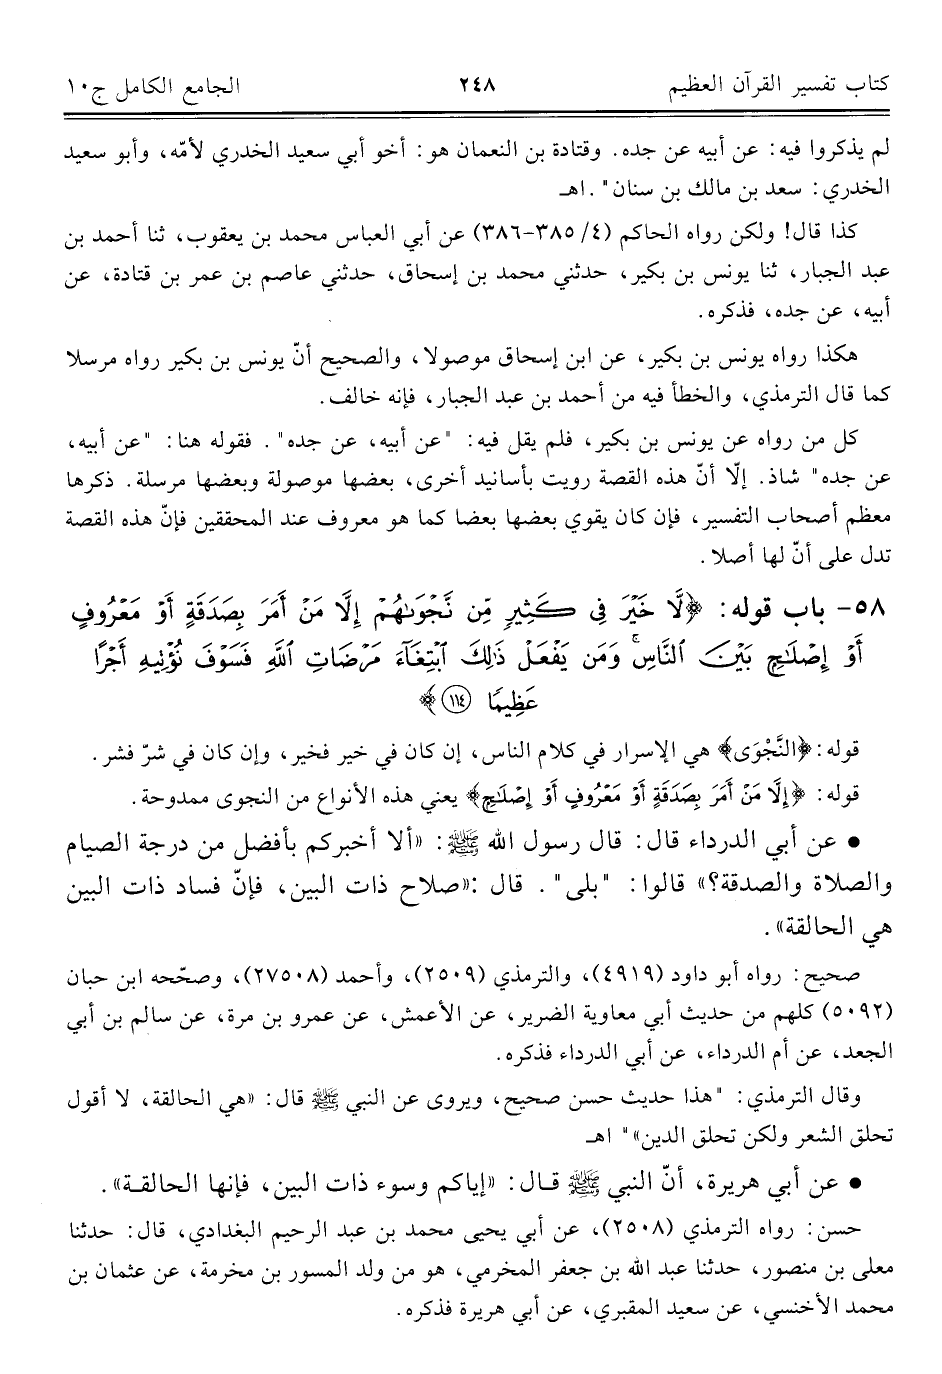 كتاب تفسير القرآن العظيم ٢٤٨ الجامع الكامل ج١٠
لم يذكروا فيه: عن أبيه عن جده. وقتادة بن النعمان هو: أخو أبي سعيد الخدري لأمّه، وأبو سعيد
الخدري: سعد بن مالك بن سنان". اهـ
كذا قال! ولكن رواه الحاكم (٤/ ٣٨٥-٣٨٦) عن أبي العباس محمد بن يعقوب، ثنا أحمد بن
عبد الجبار، ثنا يونس بن بكير، حدثني محمد بن إسحاق، حدثني عاصم بن عمر بن قتادة، عن
أبيه، عن جده، فذكره.
هكذا رواه يونس بن بكير، عن ابن إسحاق موصولا، والصحيح أنّ يونس بن بكير رواه مرسلا
كما قال الترمذي، والخطأ فيه من أحمد بن عبد الجبار، فإنه خالف.
كل من رواه عن يونس بن بكير، فلم يقل فيه: "عن أبيه، عن جده". فقوله هنا: "عن أبيه،
عن جده" شاذ. إلّا أنّ هذه القصة رويت بأسانيد أخرى، بعضها موصولة وبعضها مرسلة. ذكرها
معظم أصحاب التفسير، فإن كان يقوي بعضها بعضا كما هو معروف عند المحققين فإنّ هذه القصة
تدل على أنّ لها أصلا.
٥٨- باب قوله: ﴿لَّا خَيْرَ فِى كَثِيرٍ مِّن نَّجْوَىٰهُمْ إِلَّا مَنْ أَمَرَ بِصَدَقَةٍ أَوْ مَعْرُوفٍ
أَوْ إِصْلَـٰحٍ بَيْنَ ٱلنَّاسِ ۚ وَمَن يَفْعَلْ ذَٰلِكَ ٱبْتِغَآءَ مَرْضَاتِ ٱللَّهِ فَسَوْفَ نُؤْتِيهِ أَجْرًا
عَظِيمًا ١١٤﴾
قوله: ﴿النَّجْوَى﴾ هي الإسرار في كلام الناس، إن كان في خير فخير، وإن كان في شرّ فشر.
قوله: ﴿إِلَّا مَنْ أَمَرَ بِصَدَقَةٍ أَوْ مَعْرُوفٍ أَوْ إِصْلَـٰحٍ﴾ يعني هذه الأنواع من النجوى ممدوحة.
• عن أبي الدرداء قال: قال رسول الله ﷺ: «ألا أخبركم بأفضل من درجة الصيام
والصلاة والصدقة؟» قالوا: "بلى". قال:«صلاح ذات البين، فإنّ فساد ذات البين
هي الحالقة».
صحيح: رواه أبو داود (٤٩١٩)، والترمذي (٢٥٠٩)، وأحمد (٢٧٥٠٨)، وصحّحه ابن حبان
(٥٠٩٢) كلهم من حديث أبي معاوية الضرير، عن الأعمش، عن عمرو بن مرة، عن سالم بن أبي
الجعد، عن أم الدرداء، عن أبي الدرداء فذكره.
وقال الترمذي: "هذا حديث حسن صحيح، ويروى عن النبي ﷺ قال: «هي الحالقة، لا أقول
تحلق الشعر ولكن تحلق الدين»" اهـ
• عن أبي هريرة، أنّ النبي ﷺ قـال: «إياكم وسوء ذات البين، فإنها الحالقـة».
حسن: رواه الترمذي (٢٥٠٨)، عن أبي يحيى محمد بن عبد الرحيم البغدادي، قال: حدثنا
معلى بن منصور، حدثنا عبد الله بن جعفر المخرمي، هو من ولد المسور بن مخرمة، عن عثمان بن
محمد الأخنسي، عن سعيد المقبري، عن أبي هريرة فذكره.